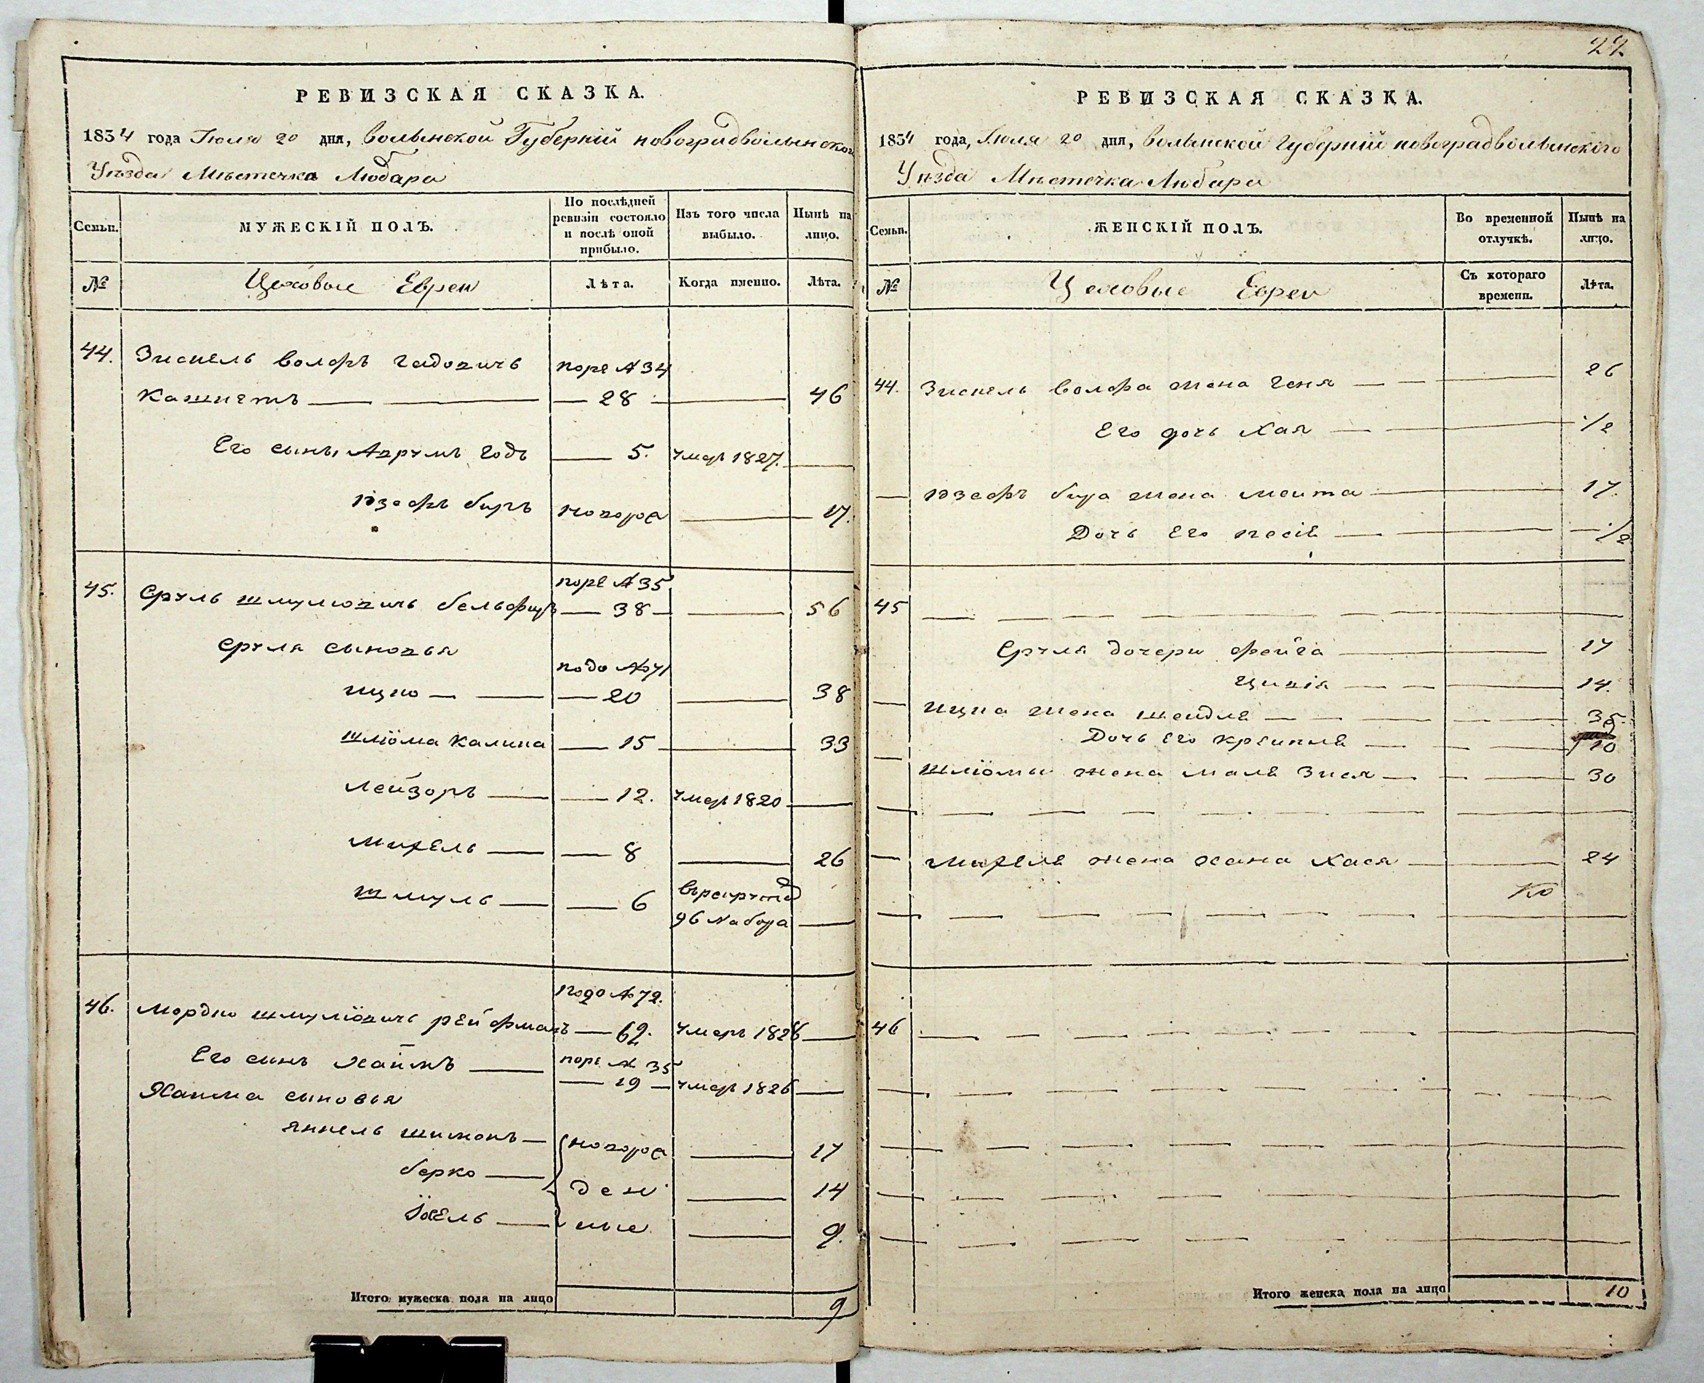 РЕВИЗСКАЯ СКАЗКА.
1834 года Июля 20 дня, Волынской Губернiй новоградволынского
Уѣзда Мѣстечка Любара
Семьи.
МУЖЕСКIЙ ПОЛЪ.
По послѣдней ревизiи состояло и послѣ оной прибыло.
Изъ того числа выбыло.
Нынѣ на лицо.
№
Цеховые Евреи
Лѣта.
Когда именно.
Лѣта.
44. Зискель Волфъ
поре №34
— 28 — 46
Его сынъ Аврумъ — 5. умеръ 1827.
новоро 17.
45. Сруль Шмулiовичь
поре №35
— 38 — 56
Сруля сыновья
Ицко — 20 — 38
Шлiома Калина — 15 — 33
Лейзоръ — 12. умеръ 1820
Михель — 8 — 26
Шмуль — 6
96 Набора
46. Мордко Шмулiовичь Рейфманъ — 62. умеръ
№72.
Его сынъ Хаимъ —
поре № 35
— 19 — умеръ 1826
Хаима сыновья
Янкель Шимонъ — новоро 17
Берко — ден 14
Iоель — ные 9.
Итого мужеска пола на лицо 9
РЕВИЗСКАЯ СКАЗКА.
1834 года, Июля 20 дня, Волынской Губернiй новоградволынскiго
Уѣзда Мѣстечка Любара
Семьи.
ЖЕНСКIЙ ПОЛЪ.
Во временной отлучкѣ.
Нынѣ на лицо.
№
Цеховые Евреи
Съ котораго времени.
Лѣта.
44. Зискель Волфа жена Геня — 26
Его дочь Хая — 1/2
жена — 17.
Дочь Его Песiе — 1/2
45
Сруля дочери Фейга — 17
Ципiя — 14.
Ицка жена Шейдле — 35
Дочь Его Крейпле — 10
Шлiомы жена Мале Зися — 30
Михеля жена Хана Хася — 24
46
Итого женска пола на лицо 10